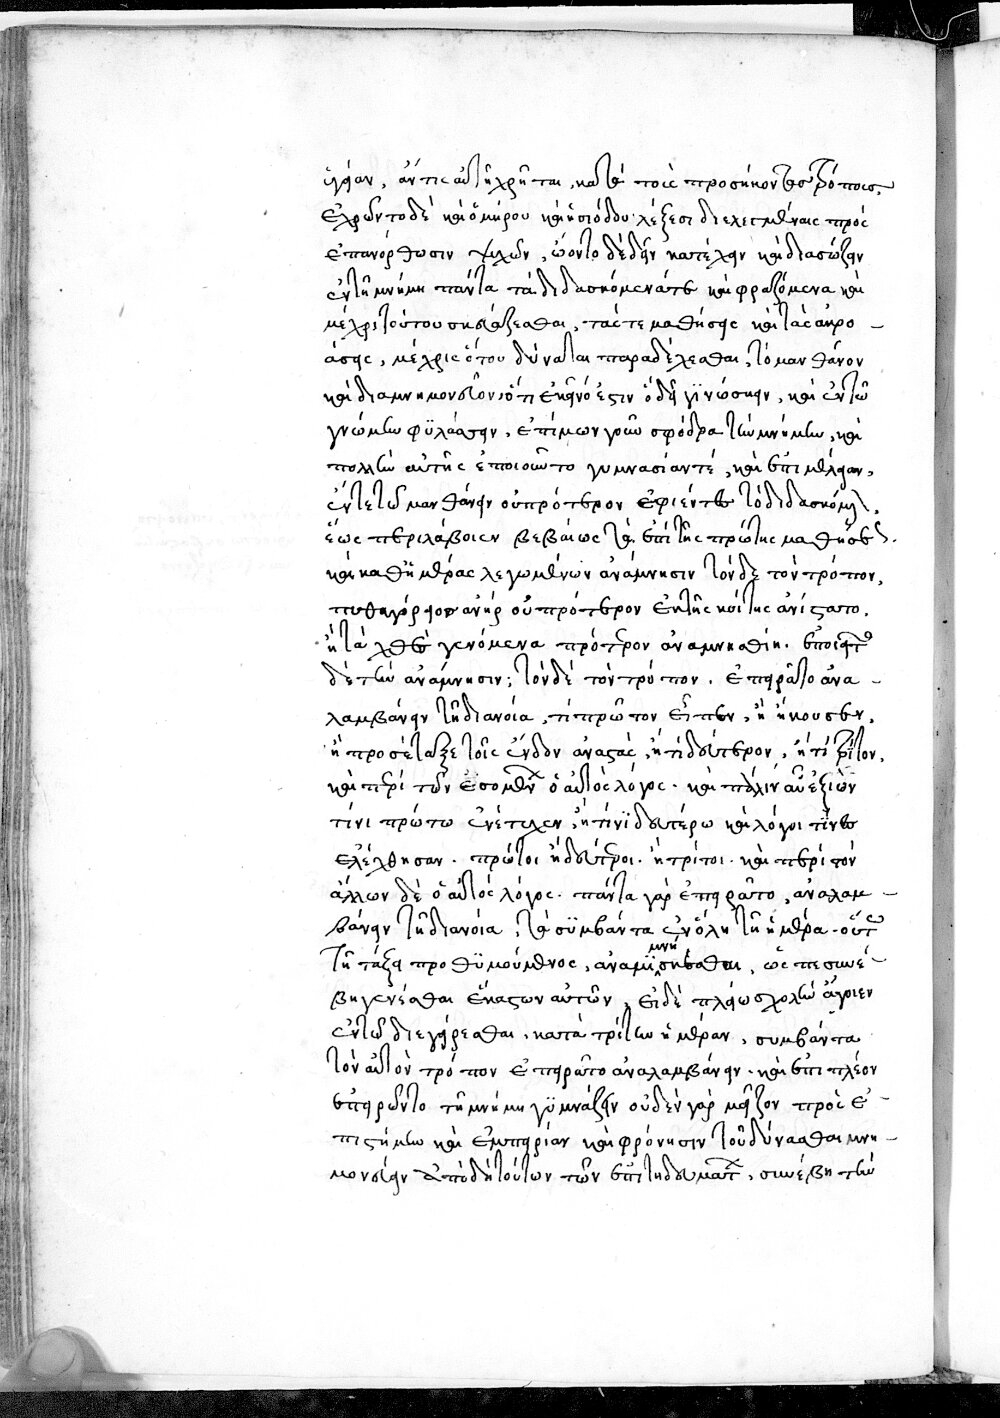 ὑγίειαν, ἄν τις αὐτῇ χρῆται, κατὰ τοὺς προσήκοντας τρόπους.
ἐχρῶντο δὲ καὶ ὁμήρου καὶ ἡσιόδου λέξεσι διειλεγμέναις πρὸς
ἐπανόρθωσιν ψυχῶν, ὤοντο δὲ δεῖν κατέχειν καὶ διασώζειν
ἐν τῇ μνήμῃ πάντα τὰ διδασκόμενά τε καὶ φραζόμενα καὶ
μέχρι τούτου συσκευάζεσθαι, τάς τε μαθήσεις καὶ τὰς ἀκρο-
άσεις, μέχρις ὅτου δύναται παραδέχεσθαι, τὸ μανθάνον
καὶ διαμνημονεῦον, ὅτι ἐκεῖνό ἐστιν ᾧ δεῖ γϊνώσκειν, καὶ ἐν τῷ
γνώμην φϋλάσσειν, ἐτίμων γοῦν σφόδρα τὴν μνήμην, καὶ
πολλὴν αὐτῆς ἐποιοῦντο γυμνασίαν τέ, καὶ ἐπιμέλειαν,
ἔν τε τῷ μανθάνειν οὐ πρότερον ἀφιέντες τὸ διδασκόμενον,
ἕως περιλάβοιεν βεβαίως τὰ ἐπὶ τῆς πρώτης μαθήσεως.
καὶ καθ' ἡμέρας λεγομένων ἀνάμνησιν τόνδε τὸν τρόπον,
πυθαγόρειος ἀνὴρ οὐ πρότερον ἐκ τῆς κοίτης ἀνίστατο.
ἢ τὰ χθὲς γενόμενα πρότερον ἀναμνησθείη. ἐποιεῖτο
δὲ τὴν ἀνάμνησιν; τόνδε τὸν τρόπον. ἐπειρᾶτο ἀνα-
λαμβάνειν τῇ διανοία, τί πρῶτον εἶπεν, ἢ ἤκουσεν,
ἢ προσέταξε τοῖς ἔνδον ἀναστάς, ἢ τί δεύτερον, ἢ τί τρίτον,
καὶ περὶ τῶν ἐσομένων ὁ αὐτὸς λόγος. καὶ πάλιν αὖ ἐξιὼν
τίνι πρώτω ἐνέτυχεν, ἢ τίνϊ δευτέρω καὶ λόγοι τίνες
ἐλέχθησαν. πρῶτοι ἢ δεύτεροι. ἢ τρίτοι. καὶ περὶ τῶν
ἄλλων δὲ ὁ αὐτὸς λόγος. πάντα γὰρ ἐπειρᾶτο, ἀναλαμ-
βάνειν τῇ διανοία, τὰ σϋμβάντα ἐν ὅλη τῇ ἡμέρα. οὕτω
τῇ τάξει προθϋμούμενος, ἀναμιμνήσκεσθαι, ὥς περ συνέ-
βη γενέσθαι ἕκαστον αὐτῶν, εἰ δὲ πλείω σχολὴν ἄγοιεν
ἐν τῷ διεγείρεσθαι, κατὰ τρίτην ἡμέραν, συμβάντα
τὸν αὐτὸν τρόπον ἐπειρᾶτο ἀναλαμβάνειν. καὶ ἐπὶ πλέον
ἐπειρῶντο τὴν μνήμην γϋμνάζειν οὐδὲν γὰρ μεῖζον πρὸς ἐ-
πιστήμην καὶ ἐμπειρίαν καὶ φρόνησιν τοῦ δύνασθαι μνη-
μονεύειν ἀπὸ δὴ τούτων τῶν ἐπιτηδευμάτων, συνέβη τὴν